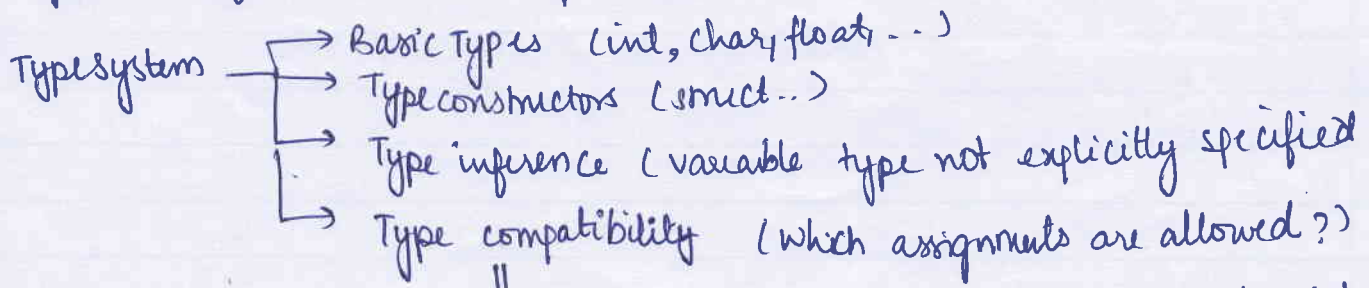 Typesystem → Basic Types (int, char, float, ..)
→ Typeconstructors (struct..)
→ Type inference (variable type not explicitly specified
→ Type compatibility (which assignments are allowed?)